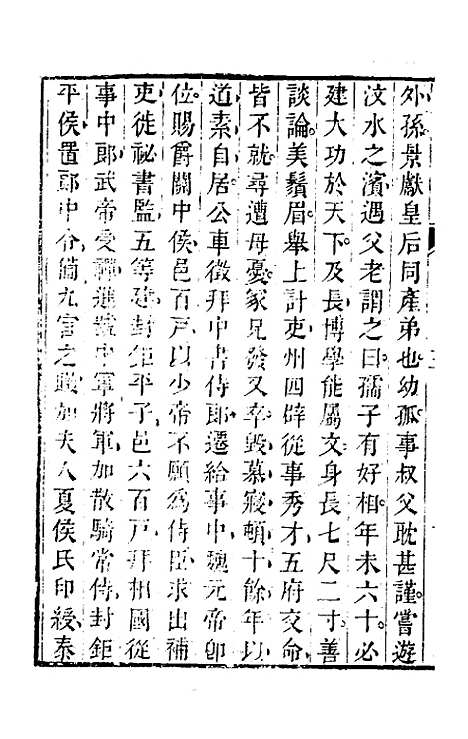 外孫景獻皇后同產弟也幼孤事叔父耽甚謹嘗遊
汶水之濱遇父老謂之曰孺子有好相年未六十必
建大功於天下及長博學能屬文身長七尺二寸善
談論美鬚眉舉上計吏州四辟從事秀才五府交命
皆不就尋遭母憂家兄發又卒毀慕寢頓十餘年以
道素自居公車徵拜中書侍郎遷給事中魏元帝即
位賜爵關中侯邑百戶以少帝不願為侍臣求出補
吏徙祕書監五等建封鉅平子邑六百戶拜相國從
事中郎武帝受禪進號中軍將軍加散騎常侍封鉅
平侯置郎中令備九官之職加夫人夏侯氏印綬泰